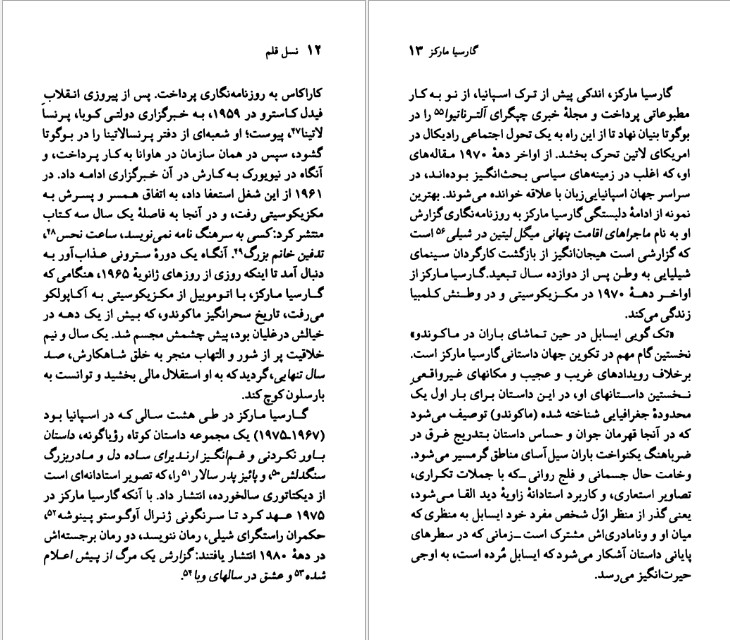 ۱۲ نسل قلم
کاراکاس به روزنامه‌نگاری پرداخت. پس از پیروزی انقلاب
فیدل کاسترو در ۱۹۵۹، به خبرگزاری دولتی کوبا، پرنسا
لاتینا۴۷، پیوست؛ او شعبه‌ای از دفتر پرنسالاتینا را در بوگوتا
گشود، سپس در همان سازمان در هاوانا به کار پرداخت، و
آنگاه در نیویورک به کارش در آن خبرگزاری ادامه داد. در
۱۹۶۱ از این شغل استعفا داد، به اتفاق همسر و پسرش به
مکزیکوسیتی رفت، و در آنجا به فاصلهٔ یک سال سه کتاب
منتشر کرد: کسی به سرهنگ نامه نمی‌نویسد، ساعت نحس۴۸،
تدفین خانم بزرگ۴۹. آنگاه یک دورهٔ سترونی عذاب‌آور به
دنبال آمد تا اینکه روزی از روزهای ژانویهٔ ۱۹۶۵، هنگامی که
گارسیا مارکز، با اتوموبیل از مکزیکوسیتی به آکاپولکو
می‌رفت، تاریخ سحرانگیز ماکوندو، که بیش از یک دهه در
خیالش درغلیان بود، پیش چشمش مجسم شد. یک سال و نیم
خلاقیت پر از شور و التهاب منجر به خلق شاهکارش، صد
سال تنهایی، گردید که به او استقلال مالی بخشید و توانست به
بارسلون کوچ کند.
گارسیا مارکز در طی هشت سالی که در اسپانیا بود
(۱۹۶۷-۱۹۷۵) یک مجموعه داستان کوتاه رؤیاگونه، داستان
باور نکردنی و غم‌انگیز ارندیرای ساده دل و مادربزرگ
سنگدلش۵۰، و پائیز پدر سالار۵۱ را، که تصویر استادانه‌ای است
از دیکتاتوری سالخورده، انتشار داد. با آنکه گارسیا مارکز در
۱۹۷۵ عهد کرد تا سرنگونی ژنرال آوگوستو پینوشه۵۲،
حکمران راستگرای شیلی، رمان ننویسد، دو رمان برجسته‌اش
در دههٔ ۱۹۸۰ انتشار یافتند: گزارش یک مرگ از پیش اعلام
شده۵۳ و عشق در سالهای وبا۵۴.
گارسیا مارکز ۱۳
گارسیا مارکز، اندکی پیش از ترک اسپانیا، از نو به کار
مطبوعاتی پرداخت و مجلهٔ خبری چپگرای آلترناتیوا۵۵ را در
بوگوتا بنیان نهاد تا از این راه به یک تحول اجتماعی رادیکال در
امریکای لاتین تحرک بخشد. از اواخر دههٔ ۱۹۷۰ مقاله‌های
او، که اغلب در زمینه‌های سیاسی بحث‌انگیز بوده‌اند، در
سراسر جهان اسپانیایی‌زبان با علاقه خوانده می‌شوند. بهترین
نمونه از ادامهٔ دلبستگی گارسیا مارکز به روزنامه‌نگاری گزارش
او به نام ماجراهای اقامت پنهانی میگل لیتین در شیلی۵۶ است
که گزارشی است هیجان‌انگیز از بازگشت کارگردان سینمای
شیلیایی به وطن پس از دوازده سال تبعید. گارسیا مارکز از
اواخر دههٔ ۱۹۷۰ در مکزیکوسیتی و در وطنش کلمبیا
زندگی می‌کند.
«تک گویی ایسابل در حین تماشای باران در ماکوندو»
نخستین گام مهم در تکوین جهان داستانی گارسیا مارکز است.
برخلاف رویدادهای غریب و عجیب و مکانهای غیرواقعیِ
نخستین داستانهای او، در این داستان برای بار اول یک
محدودهٔ جغرافیایی شناخته شده (ماکوندو) توصیف می‌شود
که در آنجا قهرمان جوان و حساس داستان بتدریج غرق در
ضرباهنگ یکنواخت باران سیل‌آسای مناطق گرمسیر می‌شود.
وخامت حال جسمانی و فلج روانی ــ که با جملات تکراری،
تصاویر استعاری، و کاربرد استادانهٔ زاویهٔ دید القا می‌شود،
یعنی گذر از منظر اوّل شخص مفرد خود ایسابل به منظری که
میان او و نامادری‌اش مشترک است ــ زمانی که در سطرهای
پایانی داستان آشکار می‌شود که ایسابل مُرده است، به اوجی
حیرت‌انگیز می‌رسد.